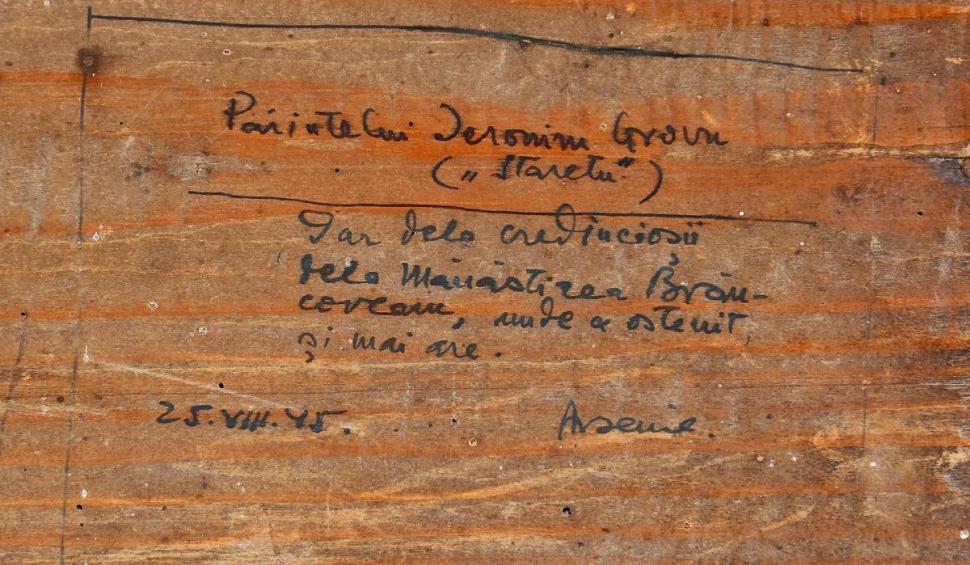 Părintelui Ieronim Grovu
(„Starețu“)
Dar dela credincioșii
dela Mănăstirea Brân-
coveanu, unde a ostenit,
și mai are.
25.VIII.45. Arsenie.